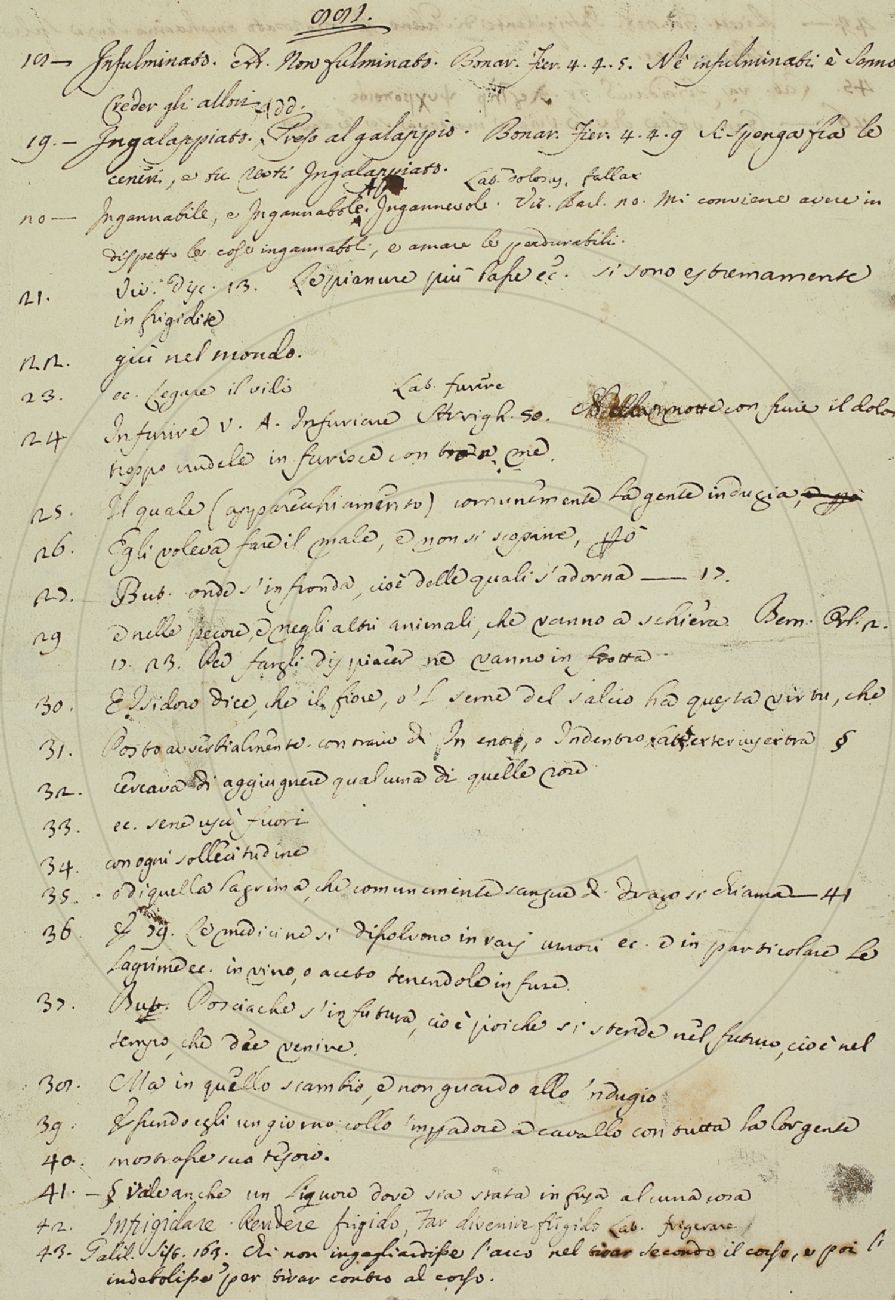 991.
18 — Infulminato. Add. Non fulminato. Bonar. Fier. 4. 4. 5. Nè infulminati è senno
Creder gli allori
Add.
19. — Ingalappiato. Preso al galappio. Bonar. Fier. 4. 4. 9 Si spenga fra le
ceneri, e tu resti Ingalappiato.
Lat. dolosus, fallax
20 — Ingannabile, e Ingannabole. Ingannevole. Vit. Barl. 20. Mi conviene avere in
dispetto le cose ingannaboli, e amare le perdurabili.
21. Viv. Disc. 13. Le pianure più basse ec. si sono estremamente
infrigidite
22. giù nel mondo.
23. ec. legare il vili
Lat. furere
24 Infurire V. A. Infuriare 50. Nella notte con furie il dolor
troppo crudele infurisce con me.
25. Il quale (apparecchiamento) comunemente la gente indugia,
26. Egli voleva fare il male, e non si scoprire,
27. But. onde s'infronda, cioè delle quali s'adorna — 17.
29 e nelle pecore, e negli altri animali, che vanno a schiera Bern. Orl. 2.
17. 23. Per fargli dispiacer ne vanno in frotta
30. E Isidoro dice, che il fiore, o 'l seme del salcio ha questa virtù, che
31. Posto avverbialmente contrario di In entro, o Indentro Lat. exterius, extra §
32. cercava di aggiugnere qualcuna di quelle cose
33. ec. sene uscì fuori
34. con ogni sollecitudine
35. o di quella lagrima, che comunemente sangue di drago si chiama — 41
36. E 39. Le medicine si dissolvono in varj umori ec. e in particolare le
lagrime ec. in vino, o aceto tenendole infuse.
37. But. Posciache s'infutura, cioè poiche si stende nel futuro, cioè nel
tempo, che dèe venire.
38. Ma in quello scambio, e non guardo allo 'ndugio
39. Essendo egli un giorno collo 'mpadore a cavallo con tutta la lor gente
40. mostrasse suo tesoro.
41. — § Vale anche un Liquore dove sia stata infusa alcuna cosa
42. Infrigidare. Rendere frigido, Far divenire frigido Lat. frigerare
43. Galil. Sist. 163. Chi non ingagliardisse l'arco nel tirar secondo il corso, e poi l'
indebolisse per tirar contro al corso.